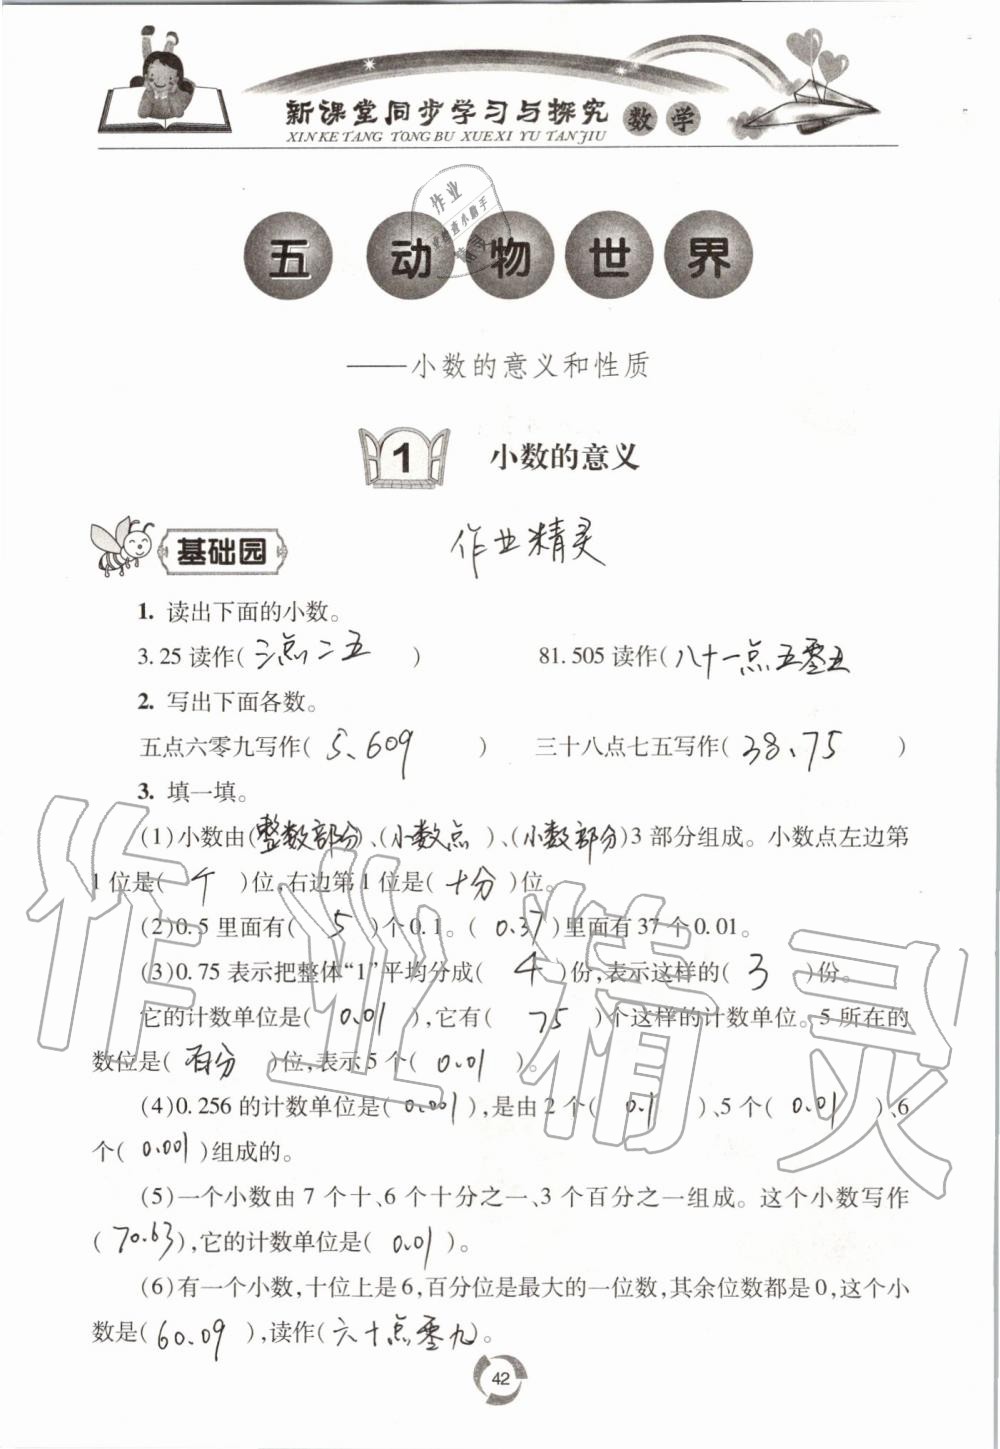 新课堂同步学习与探究 数学
XIN KE TANG TONG BU XUE XI YU TAN JIU
五 动物世界
——小数的意义和性质
1 小数的意义
基础园 作业精灵
1. 读出下面的小数。
3.25读作( 三点二五 ) 81.505读作( 八十一点五零五
2. 写出下面各数。
五点六零九写作( 5.609 ) 三十八点七五写作( 38.75 )
3. 填一填。
(1)小数由(整数部分)、(小数点)、(小数部分)3部分组成。小数点左边第
1位是( 个 )位,右边第1位是( 十分 )位。
(2)0.5里面有( 5 )个0.1。( 0.37 )里面有37个0.01。
(3)0.75表示把整体“1”平均分成( 4 )份,表示这样的( 3 )份。
它的计数单位是( 0.01 ),它有( 75 )个这样的计数单位。5所在的
数位是( 百分 )位,表示5个( 0.01 )。
(4)0.256的计数单位是( 0.001 ),是由2个( 0.1 )、5个( 0.01 )、6
个( 0.001 )组成的。
(5)一个小数由7个十、6个十分之一、3个百分之一组成。这个小数写作
( 70.63 ),它的计数单位是( 0.01 )。
(6)有一个小数,十位上是6,百分位是最大的一位数,其余位数都是0,这个小
数是( 60.09 ),读作( 六十点零九 )。
42
作业精灵